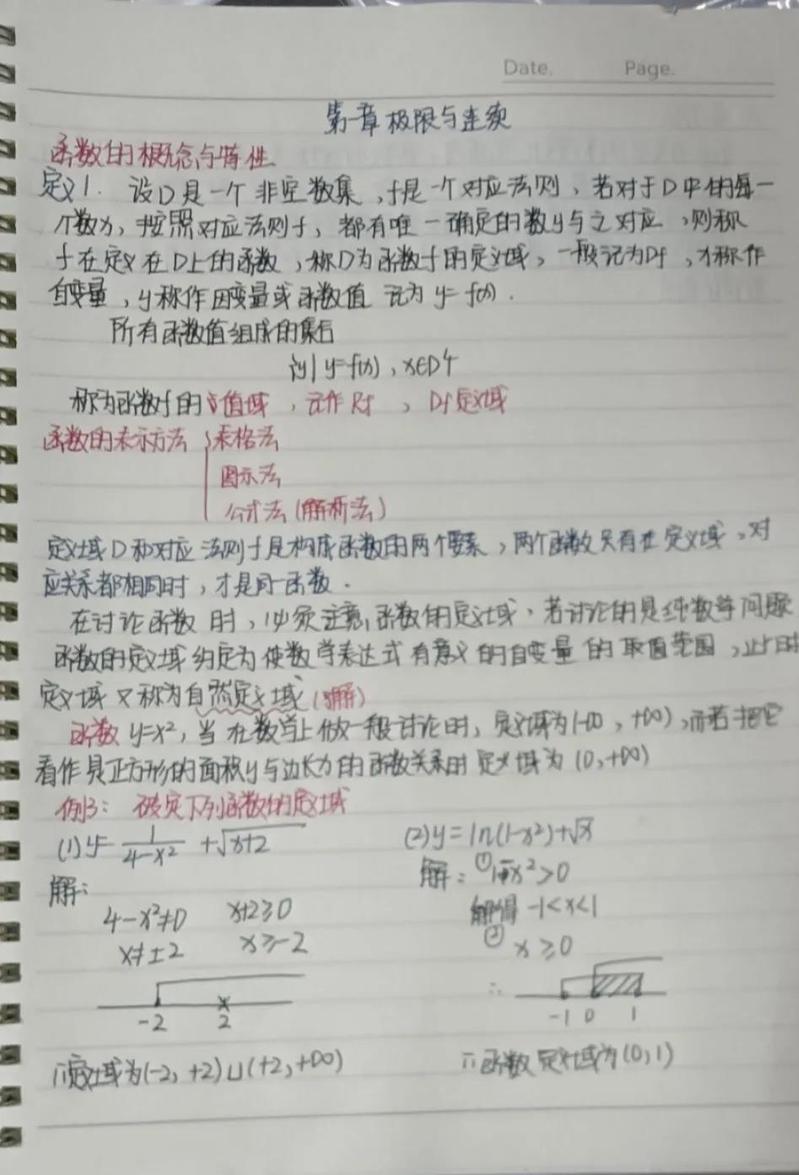 Date. Page.
第一章 极限与连续
函数的概念与特性
定义1. 设D是一个非空数集,f是一个对应法则,若对于D中的每一
个数x,按照对应法则f,都有唯一确定的数y与之对应,则称
f在定义在D上的函数,称D为函数f的定义域,一般记为Df,x称作
自变量,y称作因变量或函数值 记为 y=f(x).
所有函数值组成的集合
{y|y=f(x),x∈D}
称为函数f的值域,记作Rf,Df定义域
函数的表示方法 表格法
图示法
公式法(解析法)
定义域D和对应法则f是构成函数的两个要素,两个函数只有在定义域,对
应关系都相同时,才是同一函数.
在讨论函数时,必须注意函数的定义域.若讨论的是纯数学问题
函数的定义域约定为使数学表达式有意义的自变量的取值范围,此时
定义域又称为自然定义域(理解)
函数 y=x²,当在数学上做一般讨论时,定义域为(-∞,+∞),而若把它
看作是正方形的面积y与边长x的函数关系时定义域为(0,+∞)
例3:确定下列函数的定义域
(1)y=1/(4-x²)+√(x+2) (2)y=ln(1-x²)+√x
解: 解:①1-x²>0
4-x²≠0 x+2≥0 解得 -1<x<1
x≠±2 x≥-2 ②x≥0
∴
-2 2 -1 0 1
∴定义域为(-2,+2)∪(+2,+∞) ∴函数定义域为(0,1)